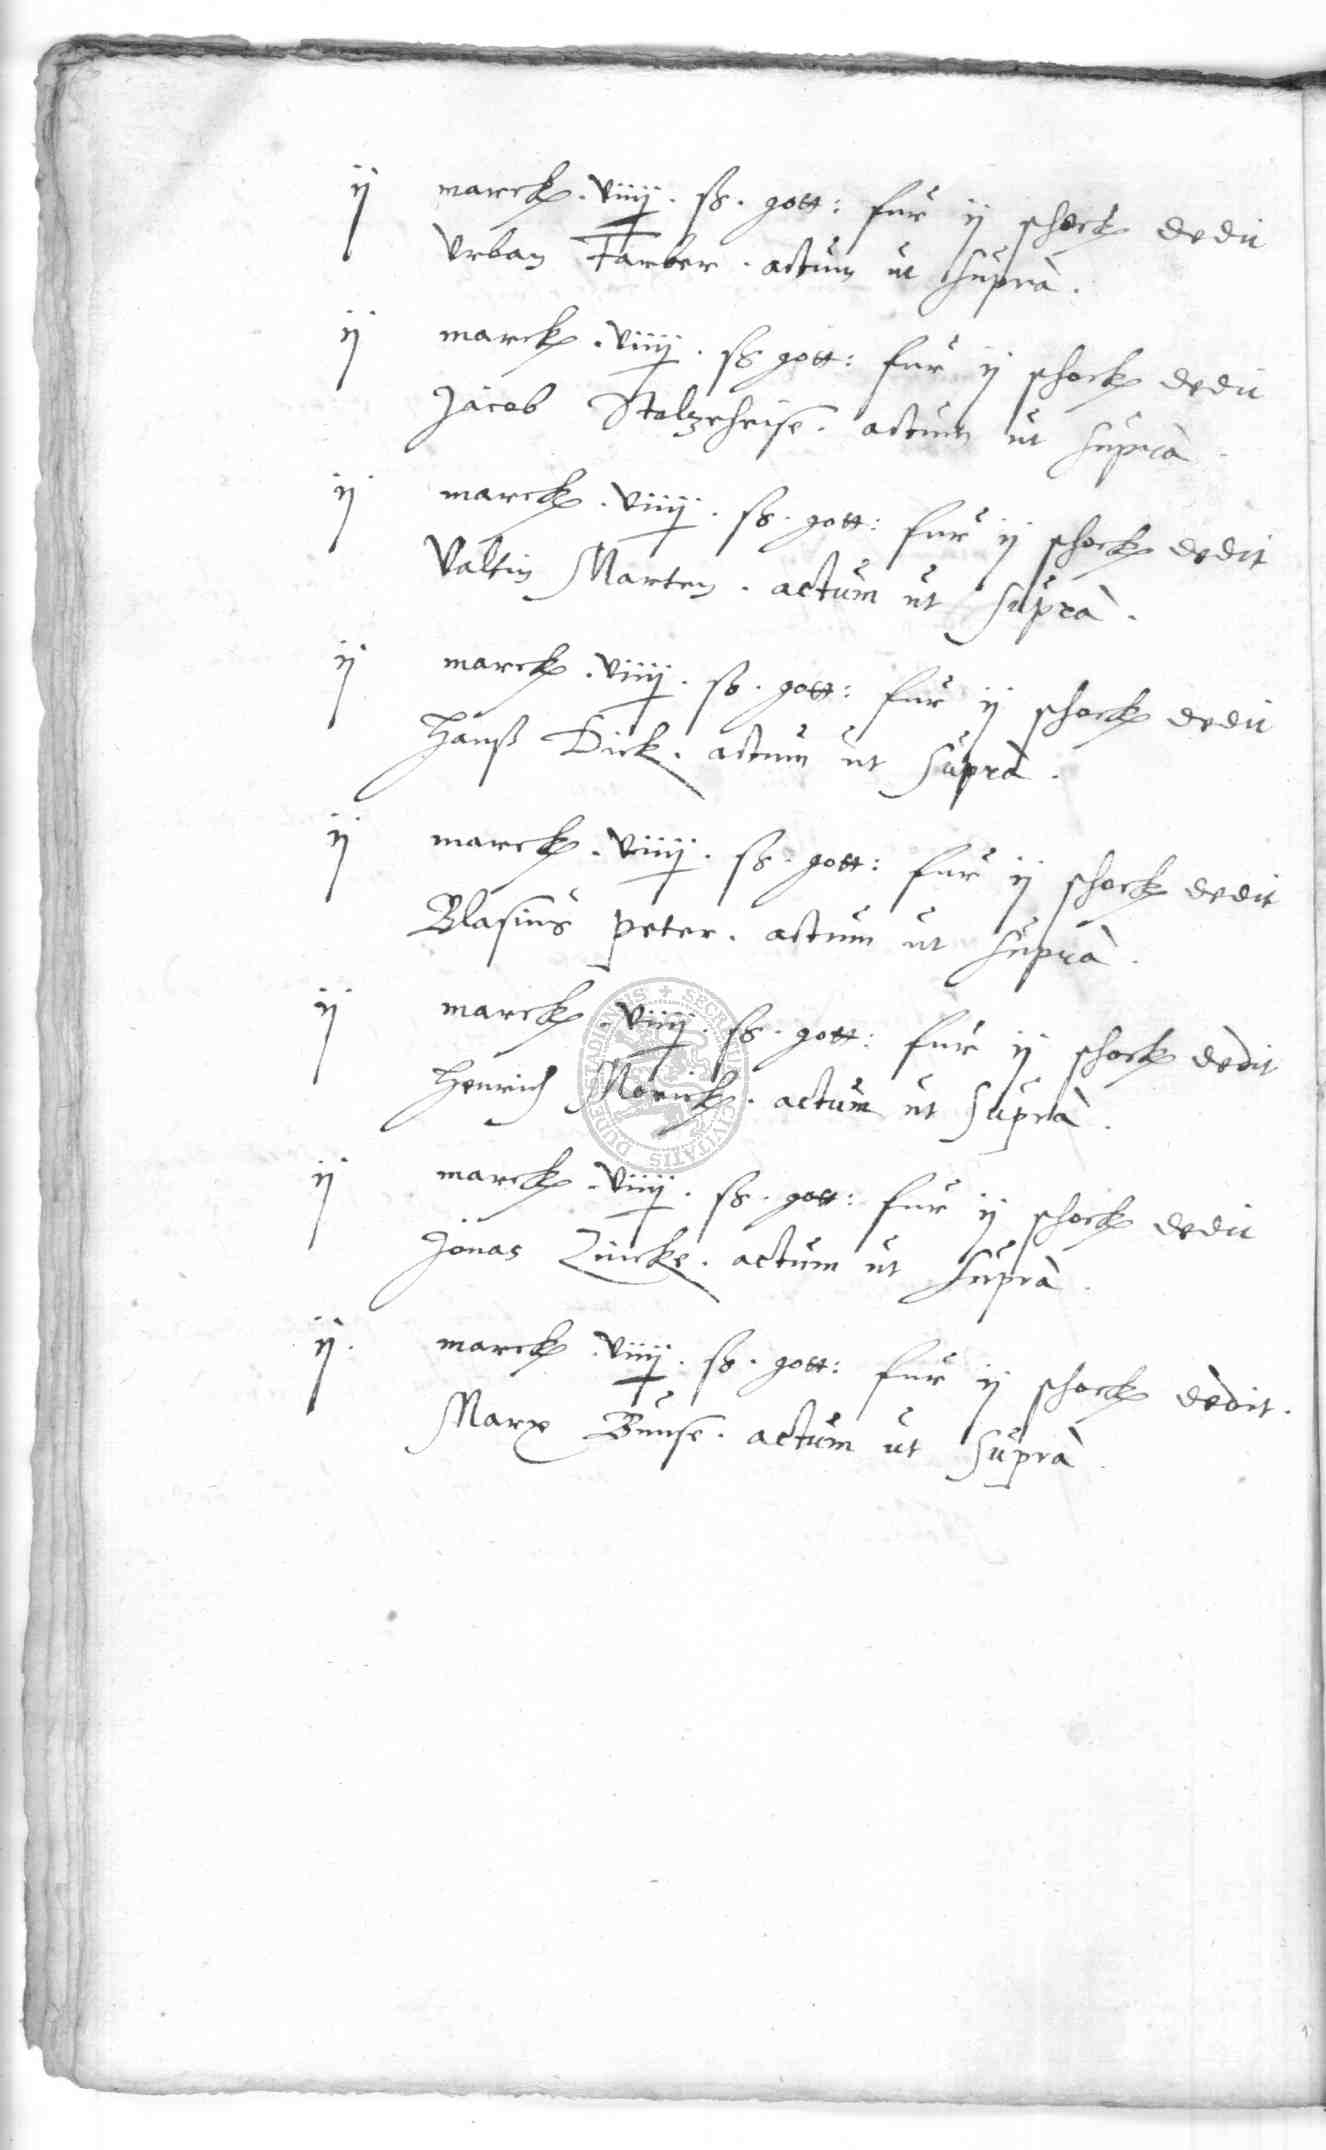 ij marck . viiij . ß . gott : fur ij schock dedit
Urban Farber . actum ut supra .
ij marck . viiij . ß gott : fur ij schock dedit
Jacob Stolzeheise . actum ut supra .
ij marck . viiij . ß . gott : fur ij schock dedit
Valtin Marten . actum ut supra .
ij marck . viiij . ß . gott : fur ij schock dedit
Hanß Dick . actum ut supra .
ij marck . viiij . ß . gott : fur ij schock dedit
Blasius Peter . actum ut supra .
ij marck . viiij . ß . gott : fur ij schock dedit
Henrich Morick . actum ut supra .
ij marck . viiij . ß . gott : fur ij schock dedit
Jonas Zincke . actum ut supra .
ij . marck . viiij . ß . gott : fur ij schock dedit .
Marx Bunse . actum ut supra .
SECRETUM CIVITATIS DUDERSTADIENSIS